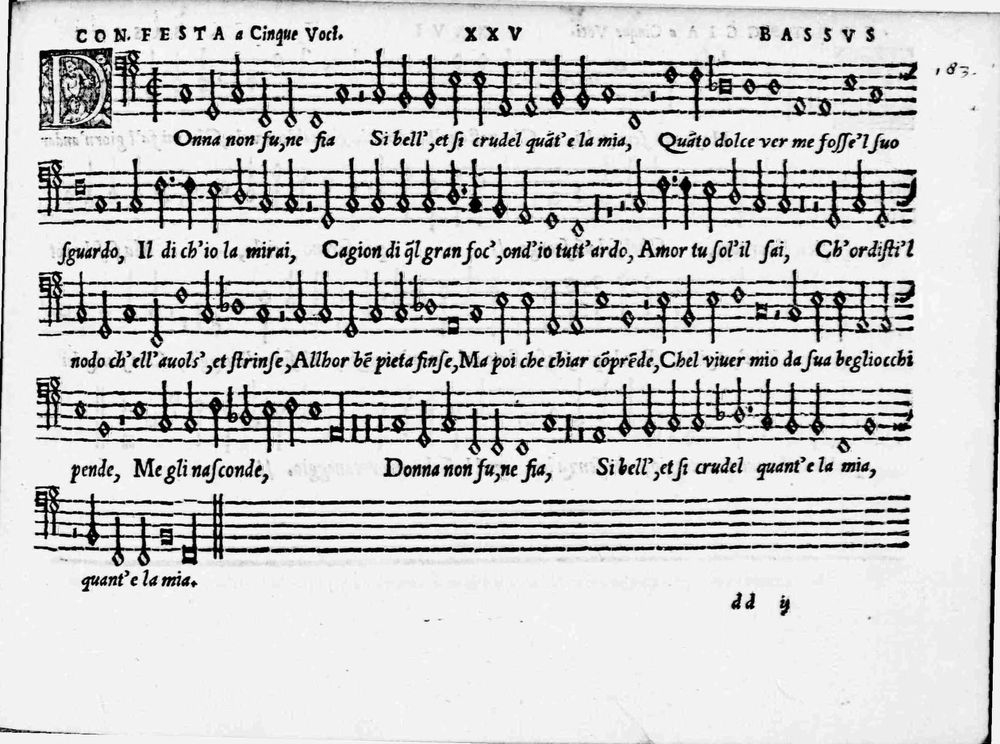 CON. FESTA a Cinque Voci. XXV BASSVS
183.
D
Onna non fu,ne fia Si bell',et si crudel quãt'e la mia, Quãto dolce ver me fosse'l suo
sguardo, Il di ch'io la mirai, Cagion di q̃l gran foc',ond'io tutt'ardo, Amor tu sol'il sai, Ch'ordisti'l
nodo ch'ell'auols',et strinse,Allhor bẽ pieta finse,Ma poi che chiar cõprẽde,Chel viuer mio da sua begliocchi
pende, Me gli nasconde, Donna non fu,ne fia, Si bell',et si crudel quant'e la mia,
quant'e la mia.
dd ij